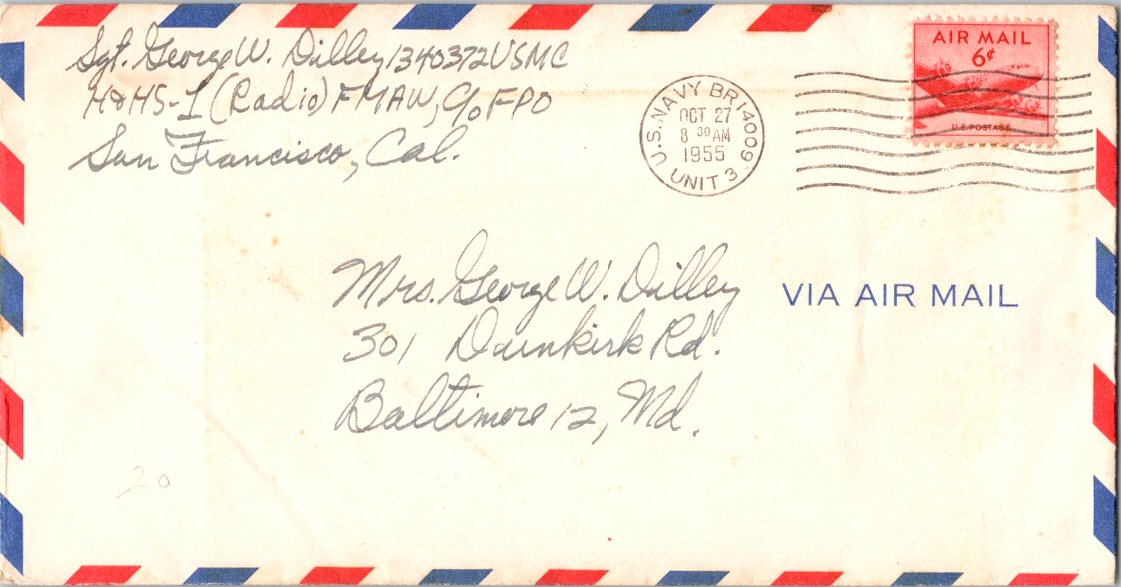 Sgt. George W. Dilley 1340372 USMC
H&HS-1 (Radio) FMAW, c/o FPO
San Francisco, Cal.
U.S. NAVY BR. 14009
OCT 27
8 30 AM
1955
UNIT 3
AIR MAIL
6¢
U.S. POSTAGE
Mrs. George W. Dilley
301 Dunkirk Rd.
Baltimore 12, Md.
VIA AIR MAIL
20